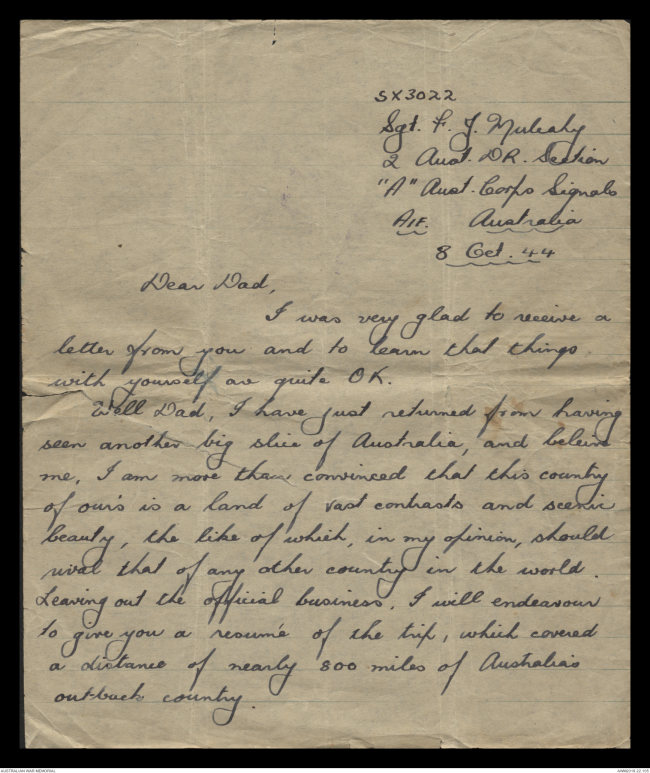 SX3022
Sgt. F. J. Mulcahy
2 Aust. DR. Section
"A" Aust. Corps Signals
AIF. Australia
8 Oct. 44
Dear Dad,
I was very glad to receive a
letter from you and to learn that things
with yourself are quite OK.
Well Dad, I have just returned from having
seen another big slice of Australia, and beleive
me, I am more than convinced that this country
of our's is a land of vast contrasts and scenic
beauty, the like of which, in my opinion, should
rival that of any other country in the world.
Leaving out the official business, I will endeavour
to give you a resumé of the trip, which covered
a distance of nearly 800 miles of Australia's
out-back country.
AUSTRALIAN WAR MEMORIAL